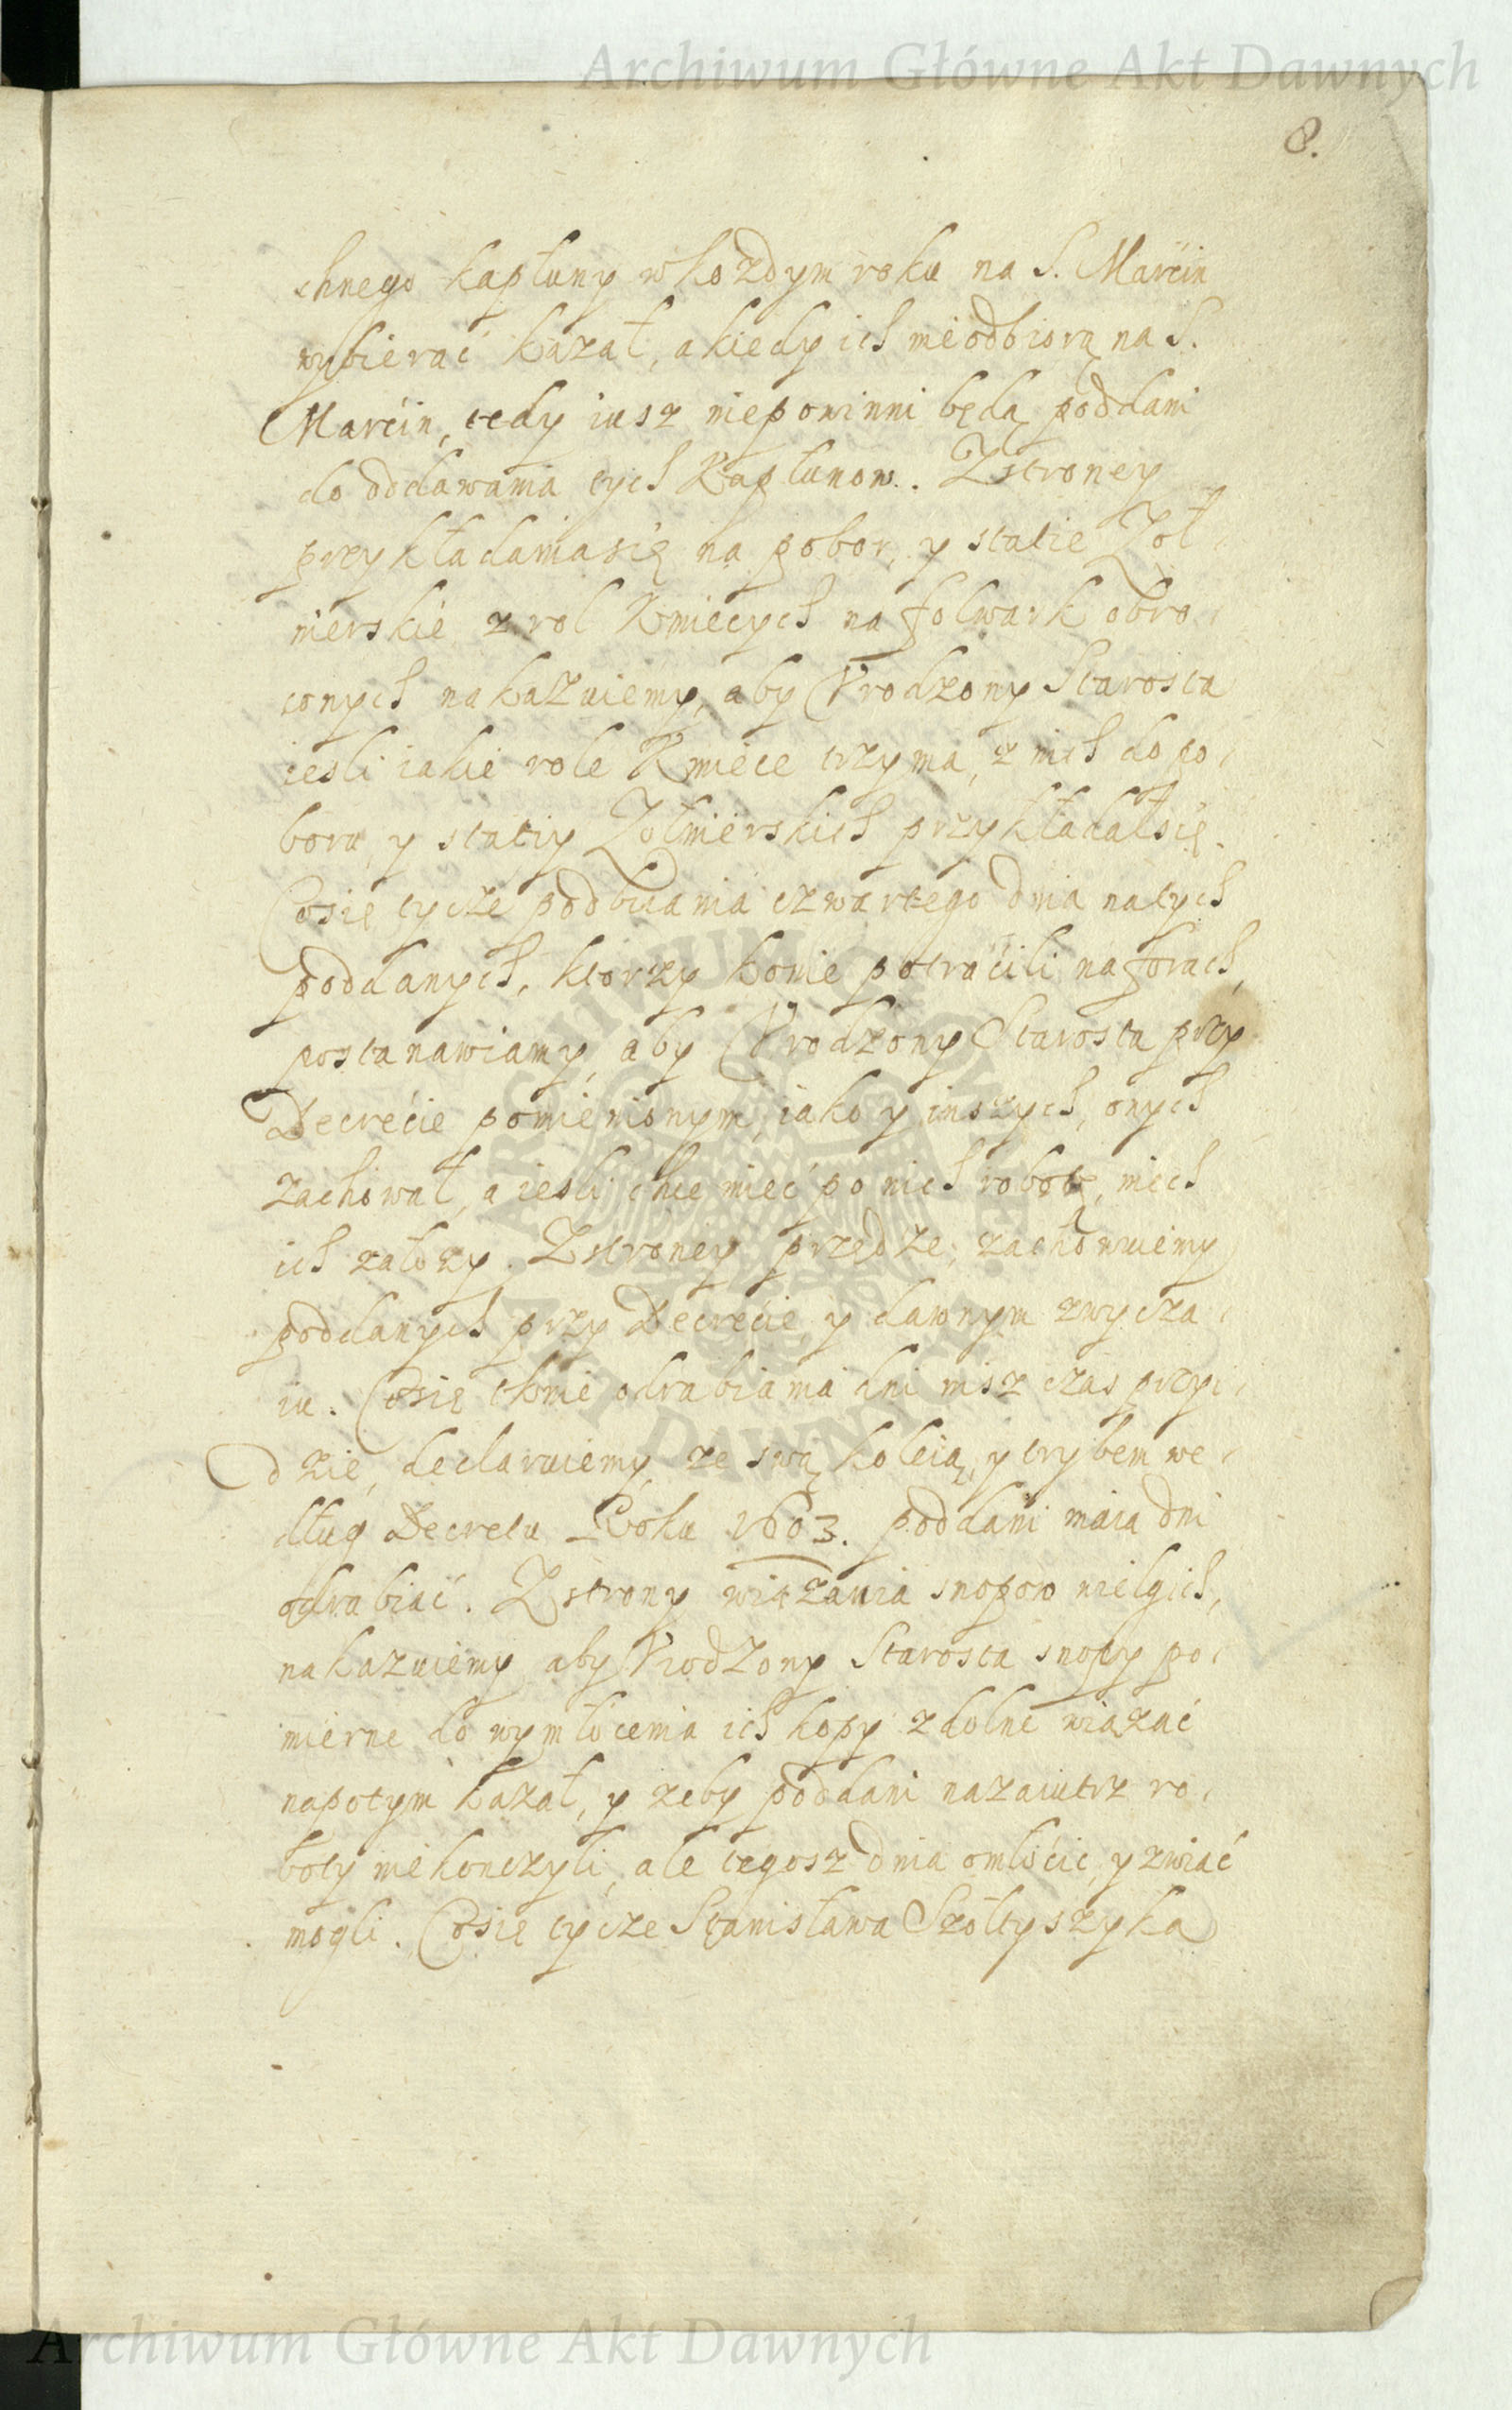 Archiwum Główne Akt Dawnych
8.
chnego kapłuny w kozdym roku na S. Marcin
wybierać kazał, a kiedy ich nieodbiorą na S.
Marcin, tedy iusz niepowinni będą poddani
do oddawania tych Kapłunow. Zstroney
przykładania się na pobor, y statie Zoł-
nierskie z rol Kmiecych na folwark obro-
conych nakazuiemy, aby Vrodzony Starosta
iesli iakie role Kmiece trzyma, z nich do po-
boru y statiy Zołnierskich przykładał się.
Cosię tycze podbicia nia czwartego dnia na tych
poddanych, ktorzy konie potracili na forach,
postanawiamy, aby Vrodzony Starosta przy
Decrecie pomienionym, iako y inszych, onych
zachował, a iesli chce mieć po nich robotę, niech
ich załozy. Zstroney przędze, zachowuiemy
poddanych przy Decrecie y dawnym zwycza-
iu. Cosię tknie odrabiania dni nisz czas przyi-
dzie, declaruiemy, ze swą koleią, y trybem we-
dług Decretu Roku 1603. poddani maią dni
odrabiać. Zstrony wiązania snopow wielgich,
nakazuiemy aby Vrodzony Starosta snopy po-
mierne do wymłocenia ich kopy zdolne wiązać
napotym kazał, y zeby poddani nazaiutrz ro-
boty niekonczyli, ale tegosz dnia omłócic, y zwiać
mogli. Cosię tycze Stanisława Szołtyszyka
ARCHIWUM GŁÓWNE AKT DAWNYCH
Archiwum Główne Akt Dawnych